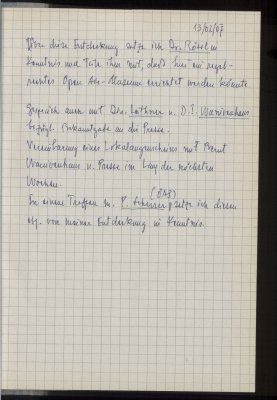 13/02/07
Über diese Entdeckung setze ich Dr. Rössl in
Kenntnis und Teile ihm mit, dass hier ein
Open Air-Museum errichtet werden könnte
Gespräch auch mit Drs. Lothner u. D.I.
bezügl. Bekanntgabe an die Presse.
Vereinbarung eines Lokalaugenscheins mit Bernt
u. Presse im Lauf der nächsten
Wochen.
(ÖAB)
In einem Treffen m. P. setze ich diesen
von meiner Entdeckung in Kenntnis.